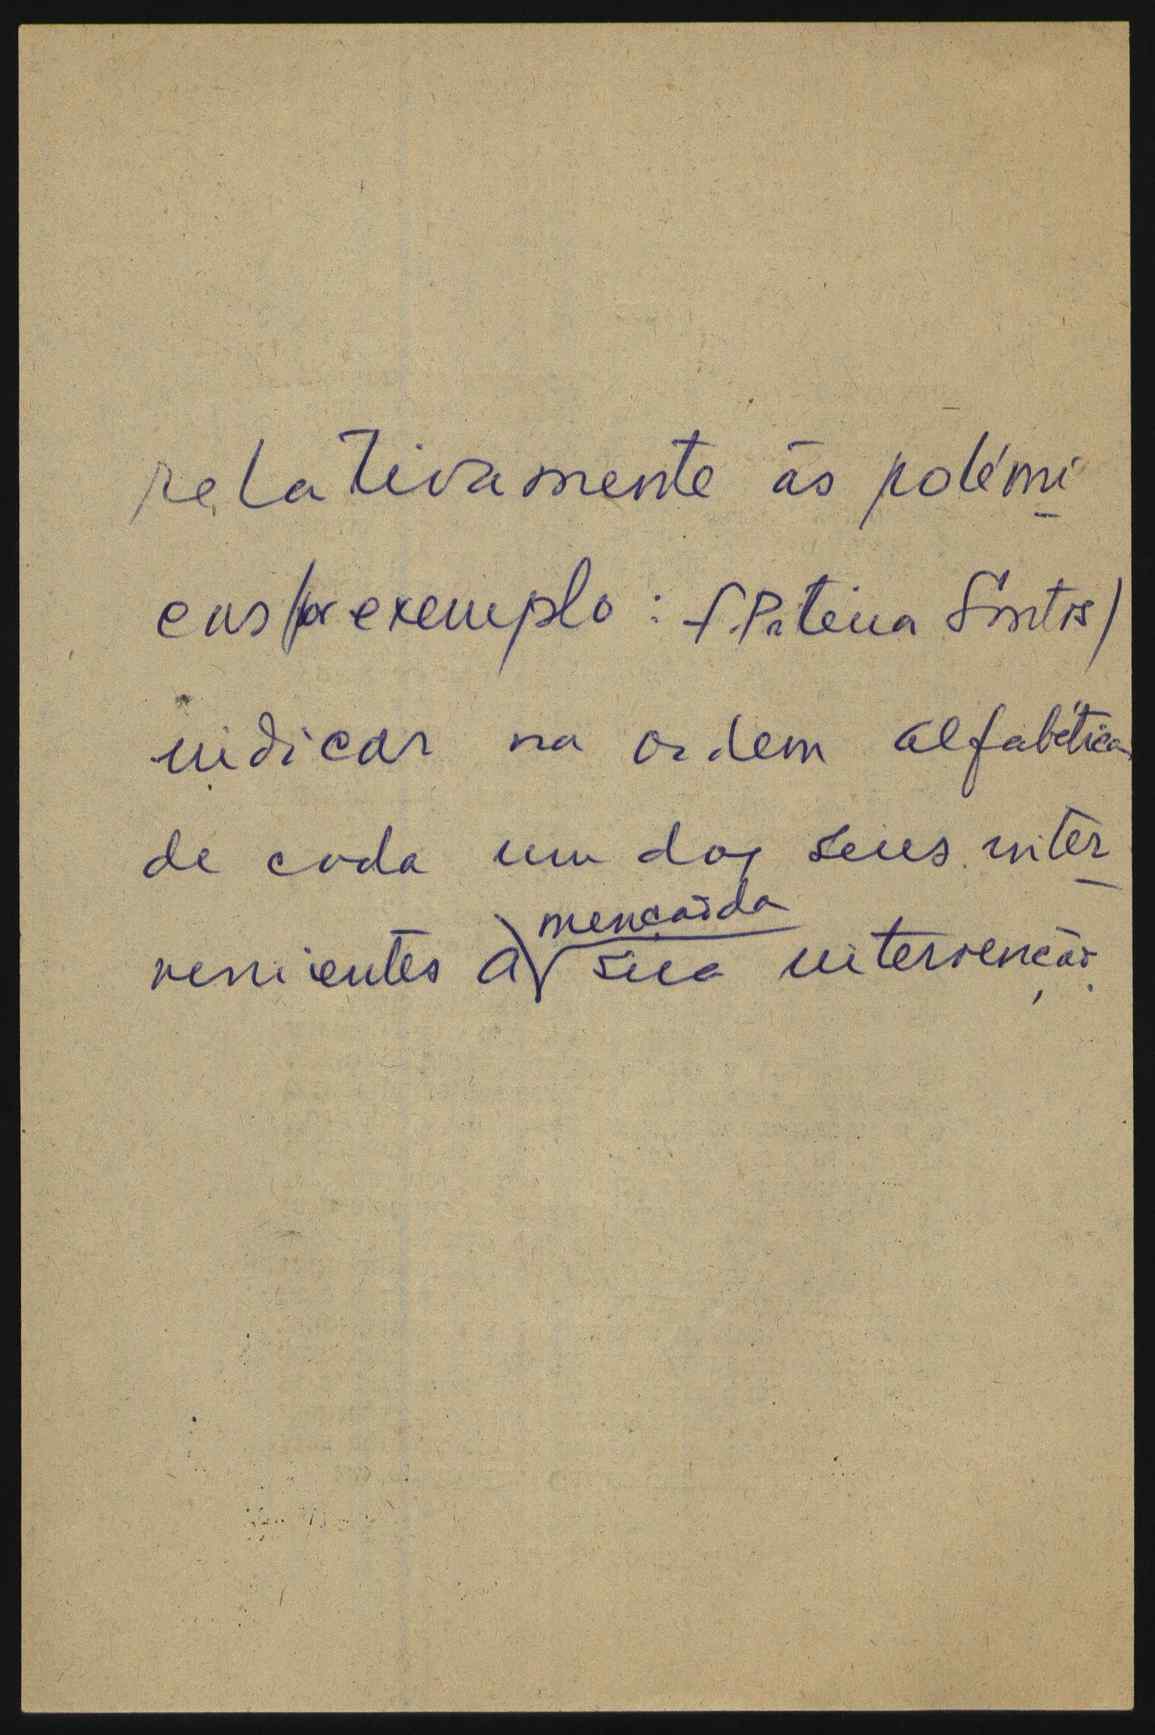 relativamente às polémi
cas (por exemplo: f. Pateira Santos)
indicar na ordem alfabética
de cada um dos seus inter
venientes a menção da sua intervenção.